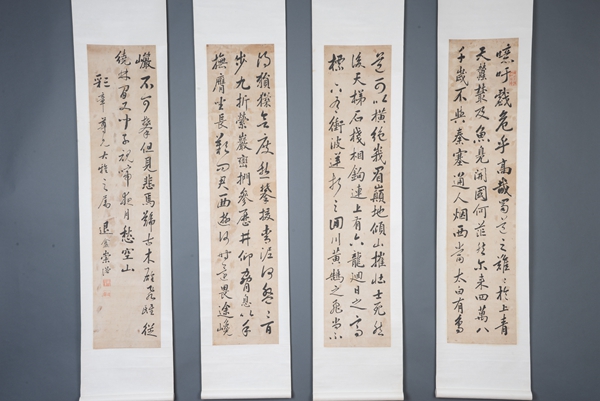 噫吁戲危乎高哉蜀道之難〻於上青
天蠶叢及魚鳧開國何茫然尔来四萬八
千歲不與秦塞通人烟西當太白有鳥
道可以橫絕峩眉巔地傾山摧壯士死然
後天梯石棧相鉤連上有六龍迴日之高
標下有衝波逆折之回川黃鶴之飛尚不
得猿猱欲度愁攀援青泥何盤〻百
步九折縈巖巒捫參歷井仰脅息以手
撫膺坐長歎問君西遊何時還畏途巉
巖不可攀但見悲鳥號古木雄飛雌從
繞林間又聞子規啼夜月愁空山
彩章尊兄大雅之屬